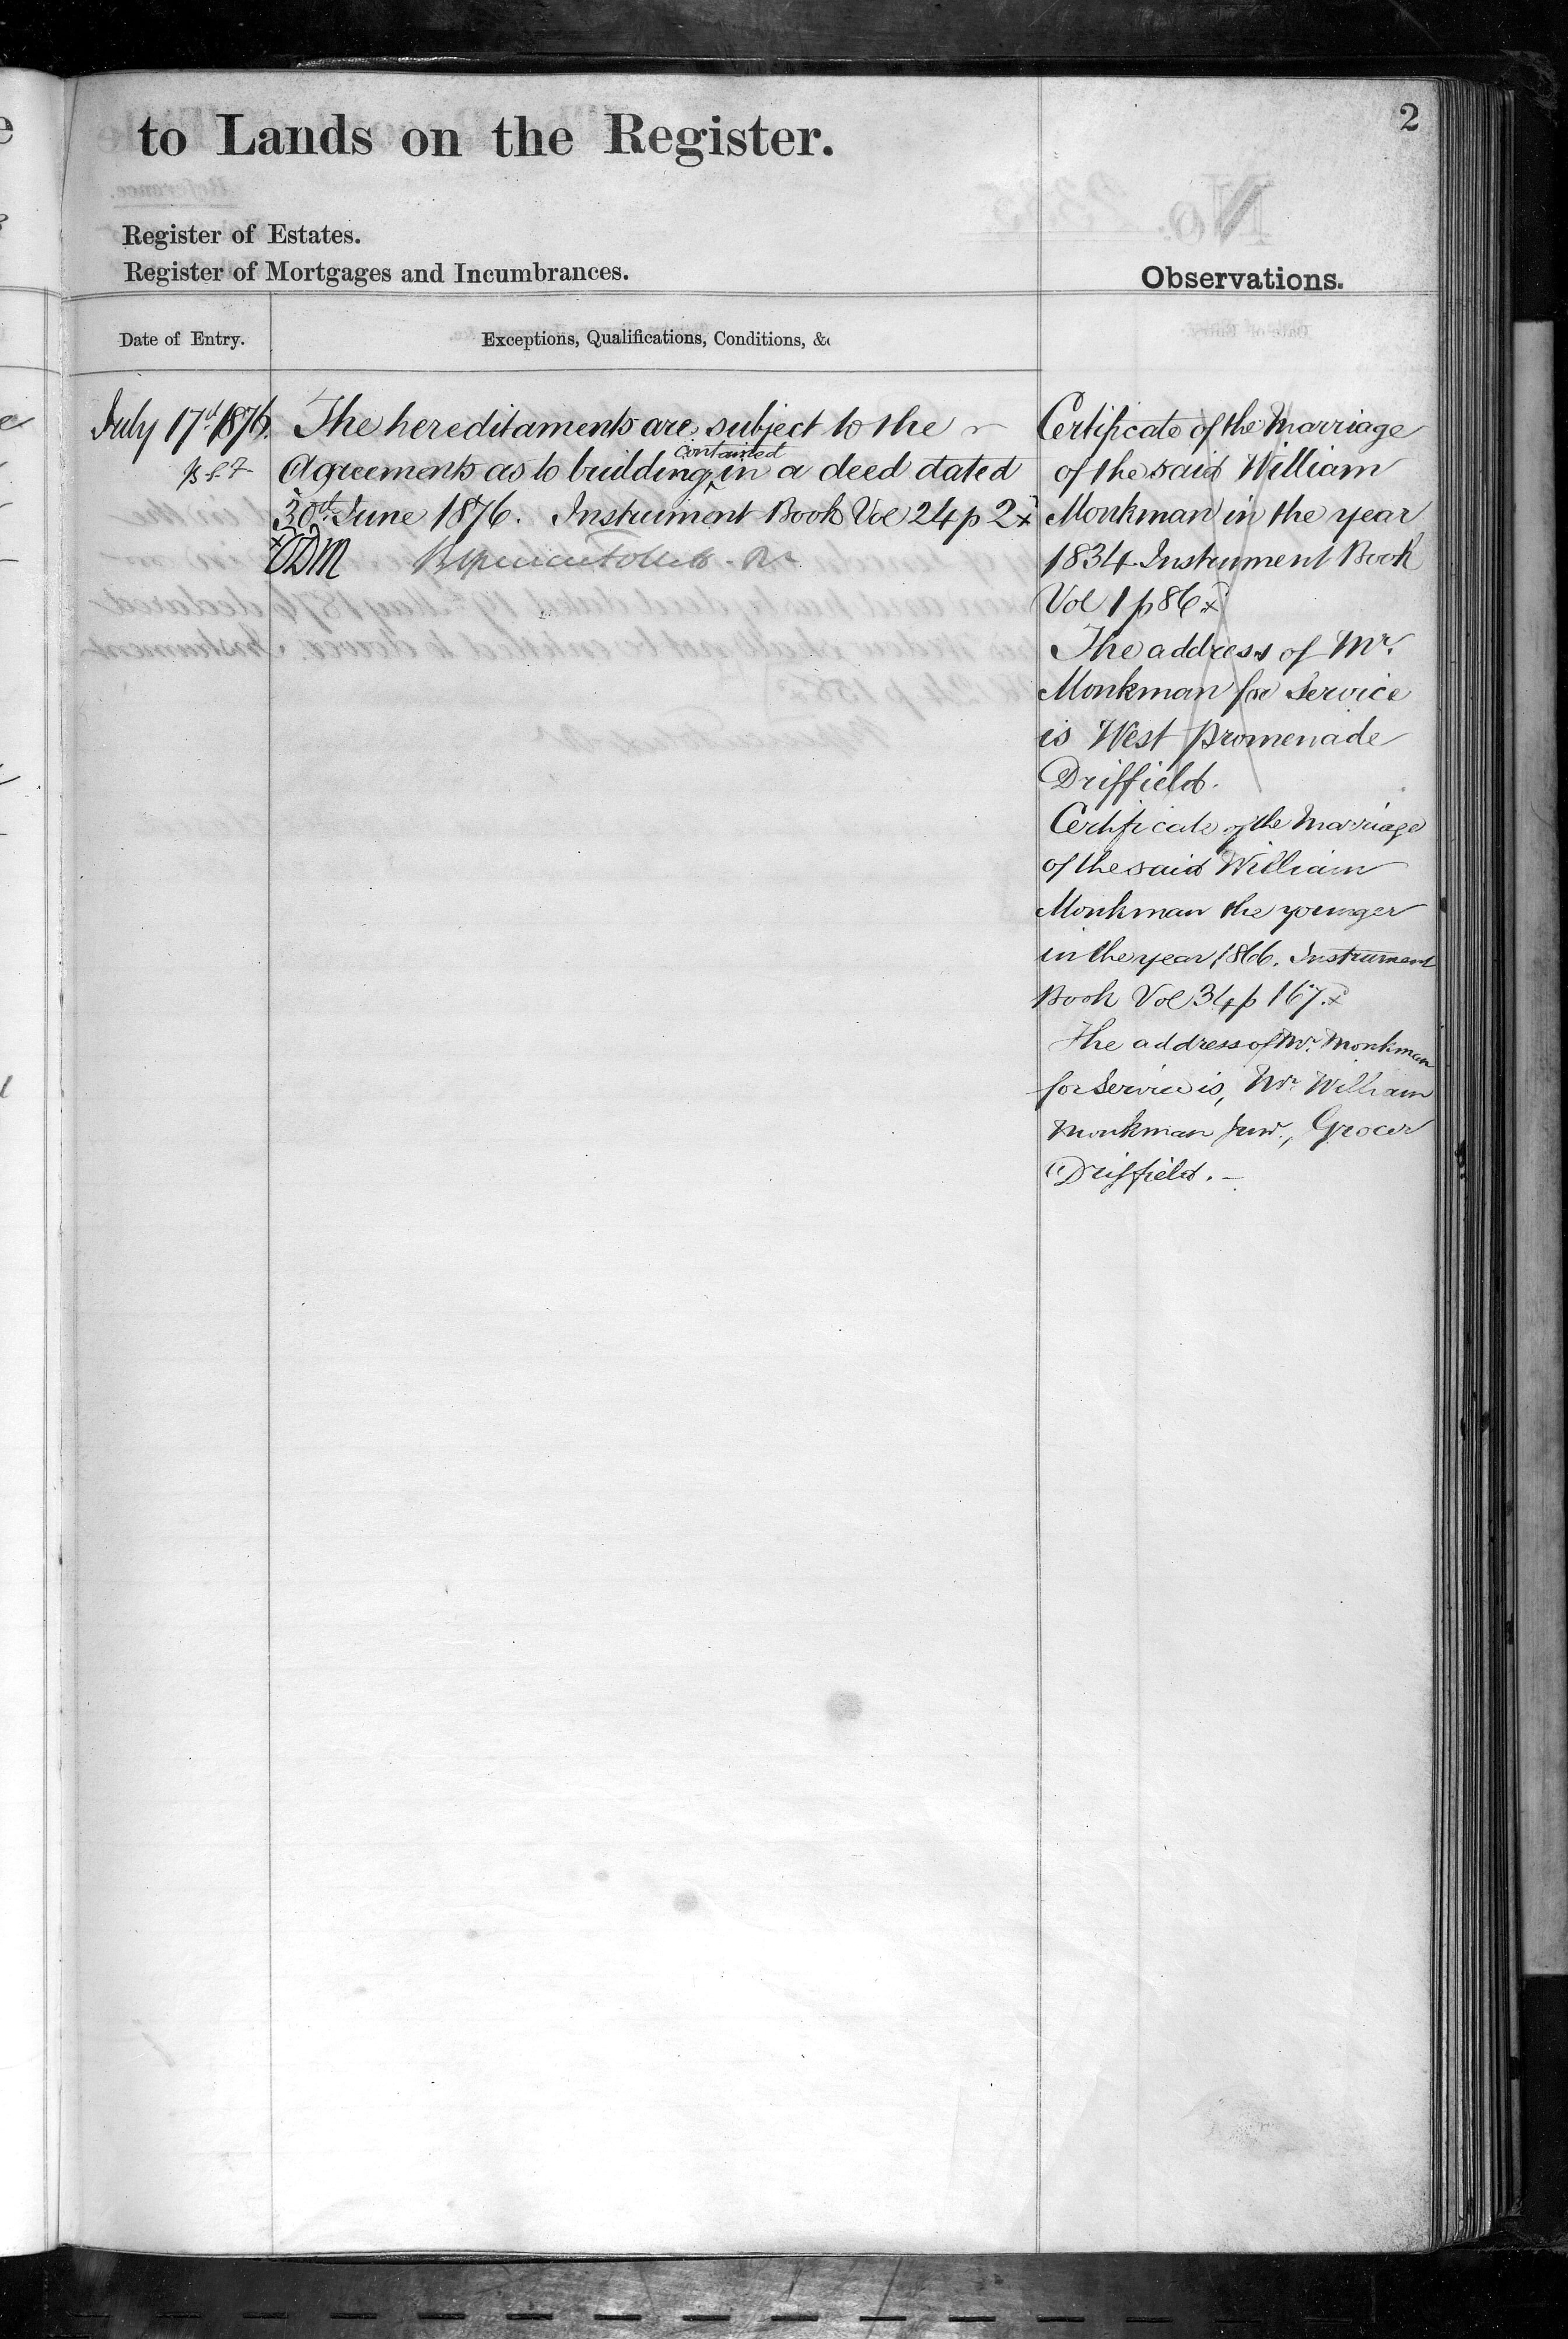 2
to Lands on the Register.
Register of Estates.
Register of Mortgages and Incumbrances.
Observations.
Date of Entry.
Exceptions, Qualifications, Conditions, &c
July 17th 1876.
The hereditaments are subject to the
Agreements as to building contained in a deed dated
30th June 1876. Instrument Book Vol 24 p 2 x
Certificate of the Marriage
of the said William
Monkman in the year
1834 Instrument Book
Vol 1 p 86 x
The address of Mr.
Monkman for Service
is West Promenade
Driffield.
Certificate of the Marriage
of the said William
Monkman the younger
in the year 1866. Instrument
Book Vol 34 p 167. x
The address of Mr. Monkman
for Service is, Mr. William
Monkman Junr., Grocer
Driffield. -